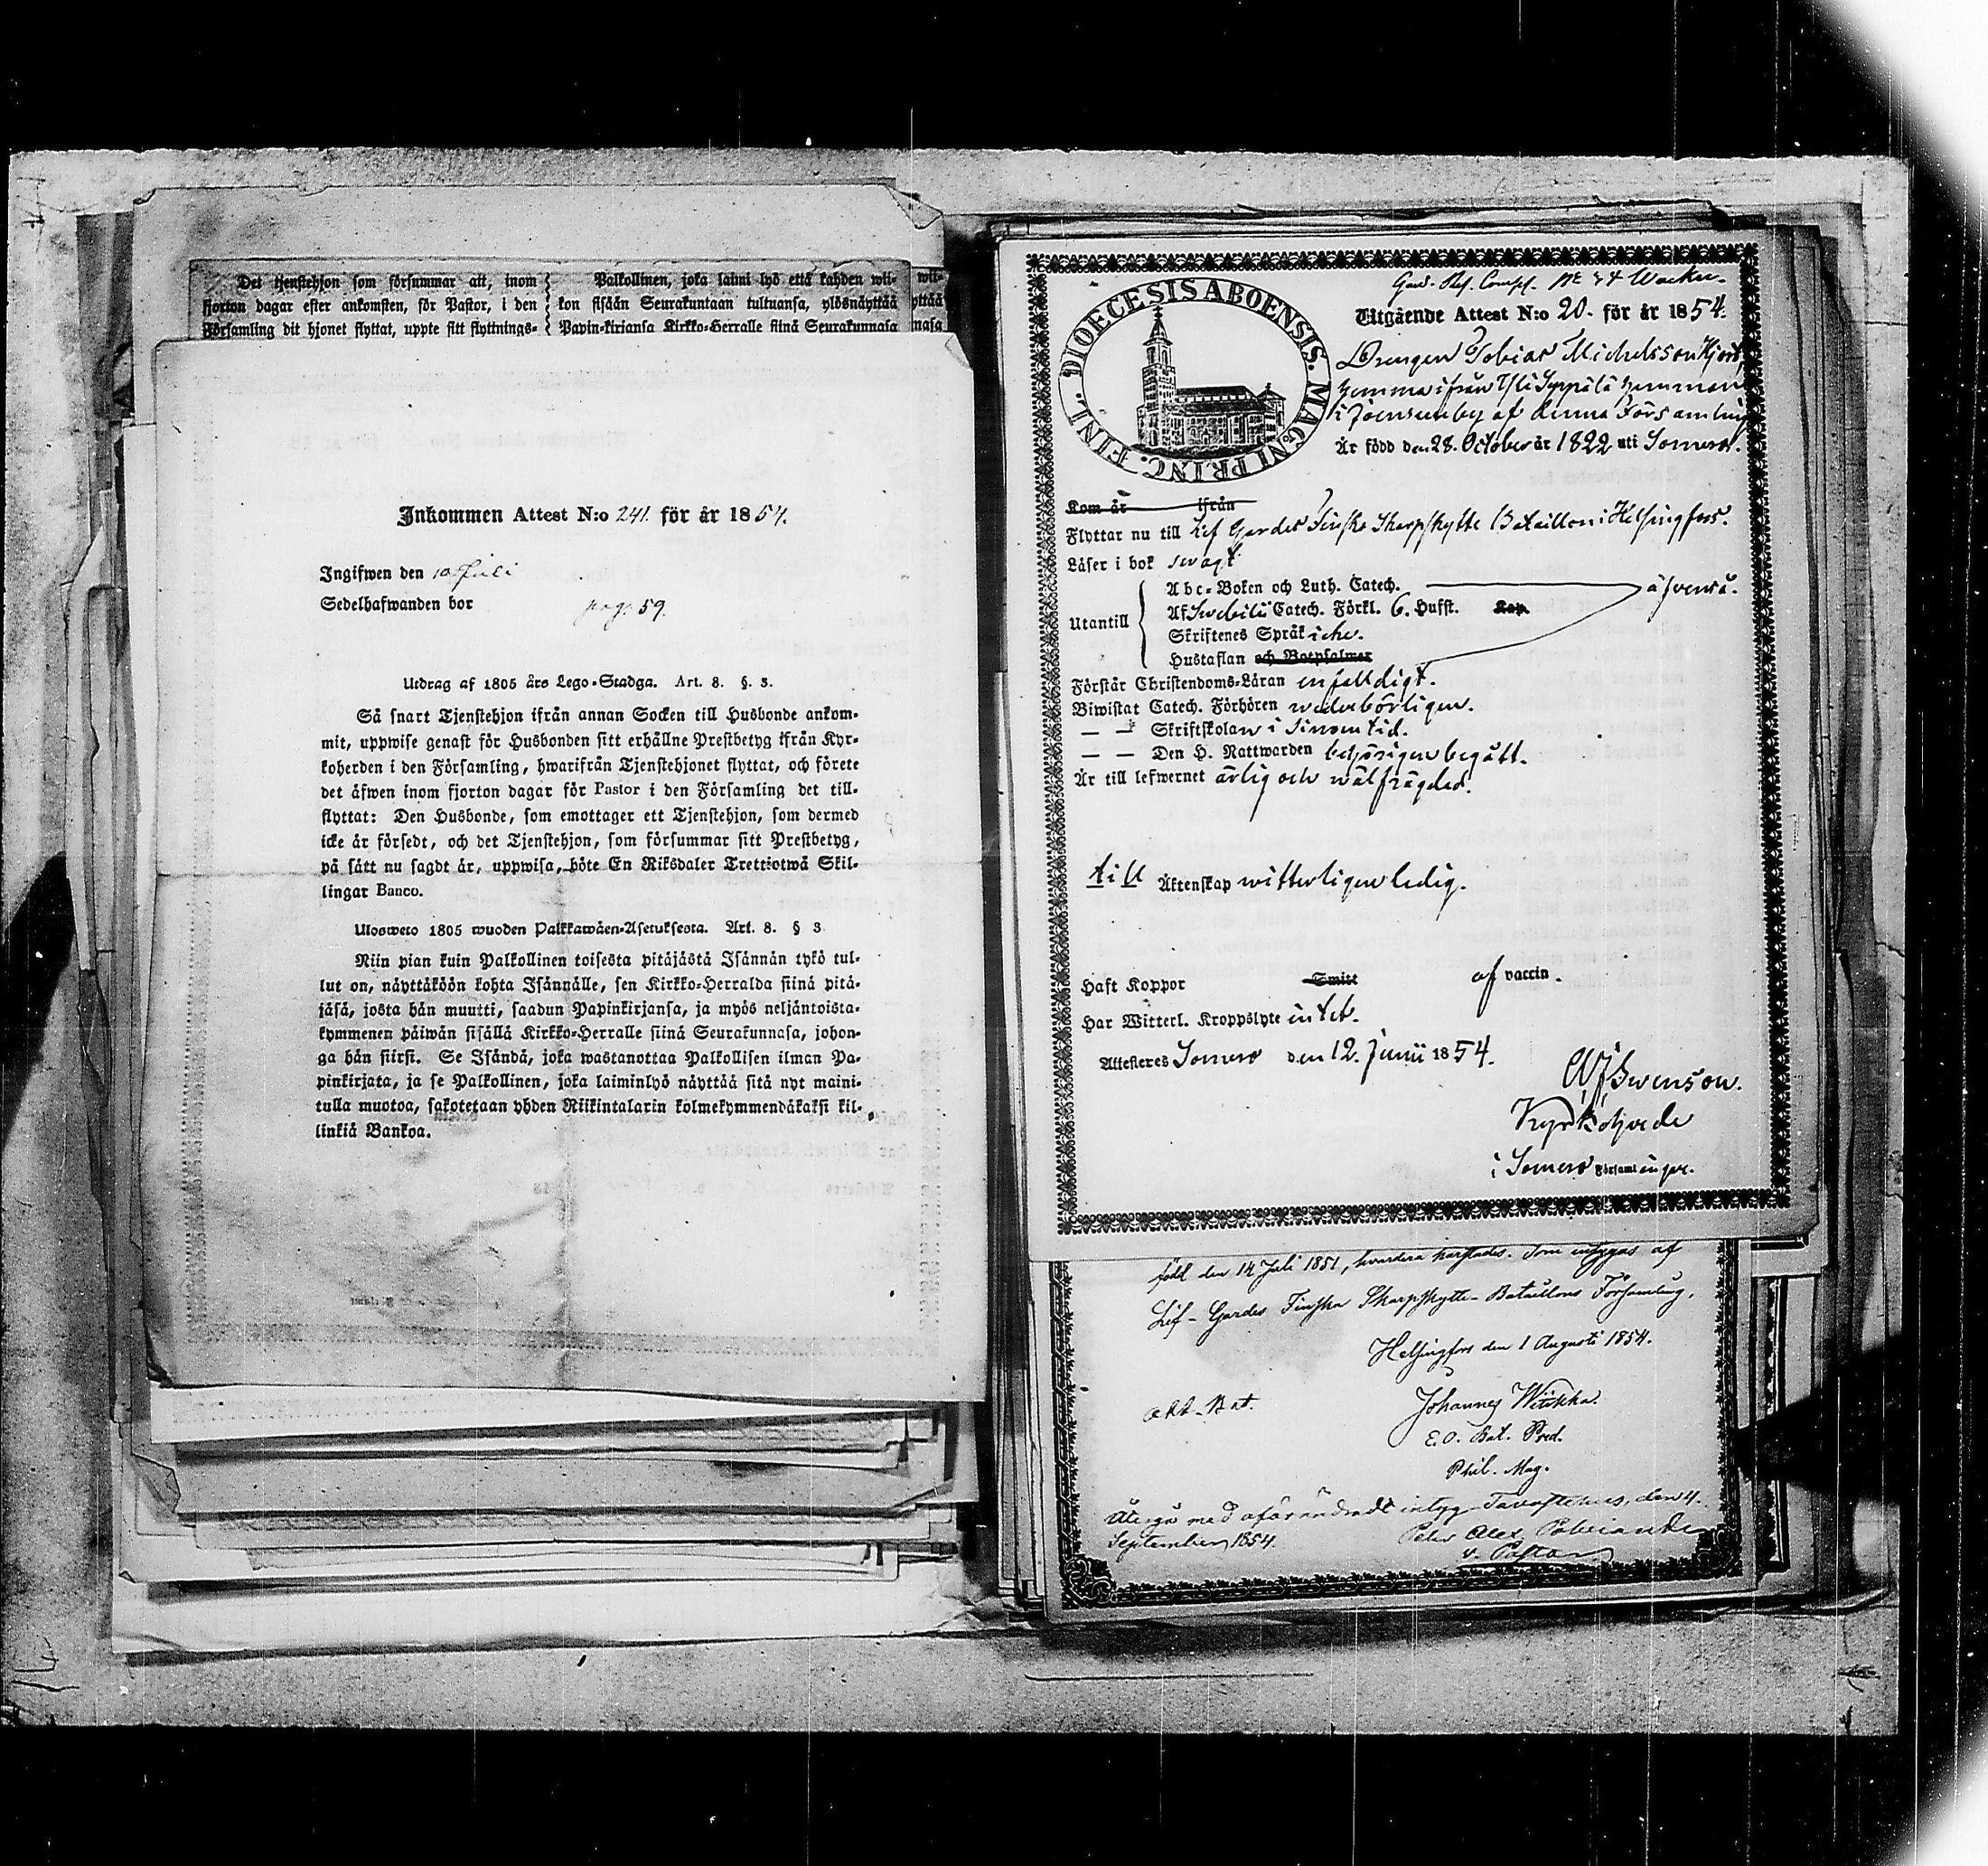 Det tjenstehjon som försummar att, inom
fjorton dagar efter ankomsten, för Pastor, i den
Församling dit hjonet flyttat, uppte sitt flyttnings-
Palkollinen, joka laimi lyö että kahden wii-
kon sisään Seurakuntaan tultuansa, ylösnäyttää
Papin-kirjansa Kirkko-Herralle siinä Seurakunnasa
wii-
yttää
nasa
Inkommen Attest N:o 241. för år 1854.
Ingifwen den 10 Juli
Sedelhafwanden bor pag. 59.
Utdrag af 1805 års Lego-Stadga. Art. 8. §. 3.
Så snart Tjenstehjon ifrån annan Socken till Husbonde ankom-
mit, uppwise genast för Husbonden sitt erhållne Prestbetyg ifrån Kyr-
koherden i den Församling, hwarifrån Tjenstehjonet flyttat, och förete
det äfwen inom fjorton dagar för Pastor i den Församling det till-
flyttat: Den Husbonde, som emottager ett Tjenstehjon, som dermed
icke är försedt, och det Tjenstehjon, som försummar sitt Prestbetyg,
på sätt nu sagdt är, uppwisa, böte En Riksdaler Trettiotwå Skil-
lingar Banco.
Ulosweto 1805 wuoden Palkkawäen-Asetuksesta. Art. 8. § 3
Niin pian kuin Palkollinen toisesta pitäjästä Isännän tykö tul-
lut on, näyttäköön kohta Isännälle, sen Kirkko-Herralda siinä pitä-
jäsä, josta hän muutti, saadun Papinkirjansa, ja myös neljäntoista-
kymmenen päiwän sisällä Kirkko-Herralle siinä Seurakunnasa, johon-
ga hän siirsi. Se Isändä, joka wastanottaa Palkollisen ilman Pa-
pinkirjata, ja se Palkollinen, joka laiminlyö näyttää sitä nyt maini-
tulla muotoa, sakotetaan yhden Riikintalarin kolmekymmendäkaksi kil-
linkiä Bankoa.
DIOECESIS ABOENSIS. MAGNI PRINC. FINL.
Utgående Attest N:o 20. för år 1854.
Drengen Tobias Michelsson Hjort,
hemma ifrån Yli Seppälä hemman
i Joensuu by af denna Församling
Är född den 28. October år 1822 uti Somero.
Kom år ifrån
Flyttar nu till Lif Gardes Finska Skarpskytte Bataillon i Helsingfors.
Läser i bok svagt
Utantill
Abc-Boken och Luth. Catech. äfvenså.
Af Svebilii Catech. Förkl. 6. Hufst. Kap.
Skriftenes Språk icke.
Hustaflan och Botpsalmer
Förstår Christendoms-Läran enfalldigt.
Biwistat Catech. Förhören wederbörligen.
— — Skriftskolan i sinom tid.
— — Den H. Nattwarden behörigen begått.
Är till lefwernet ärlig och wälfrägdad.
till Äktenskap witterligen ledig.
Haft Koppor Smitt af vaccin.
Har Witterl. Kroppslyte intet.
Attesteras Somero den 12. Junii 1854.
Swenson.
Kyrkoherde
i Somero Församlingar.
född den 14 Juli 1851, hvardera
Lif-Gardes Finska Skarpskytte-Bataillons Församling.
Helsingfors den 1 Augusti 1854.
Johannes Witikka.
E.O. Bat. Pred.
Phil. Mag.
Återgår med oförändradt intyg Tavastehus, den 4.
September 1854. Peter Alex.
v. Pastor